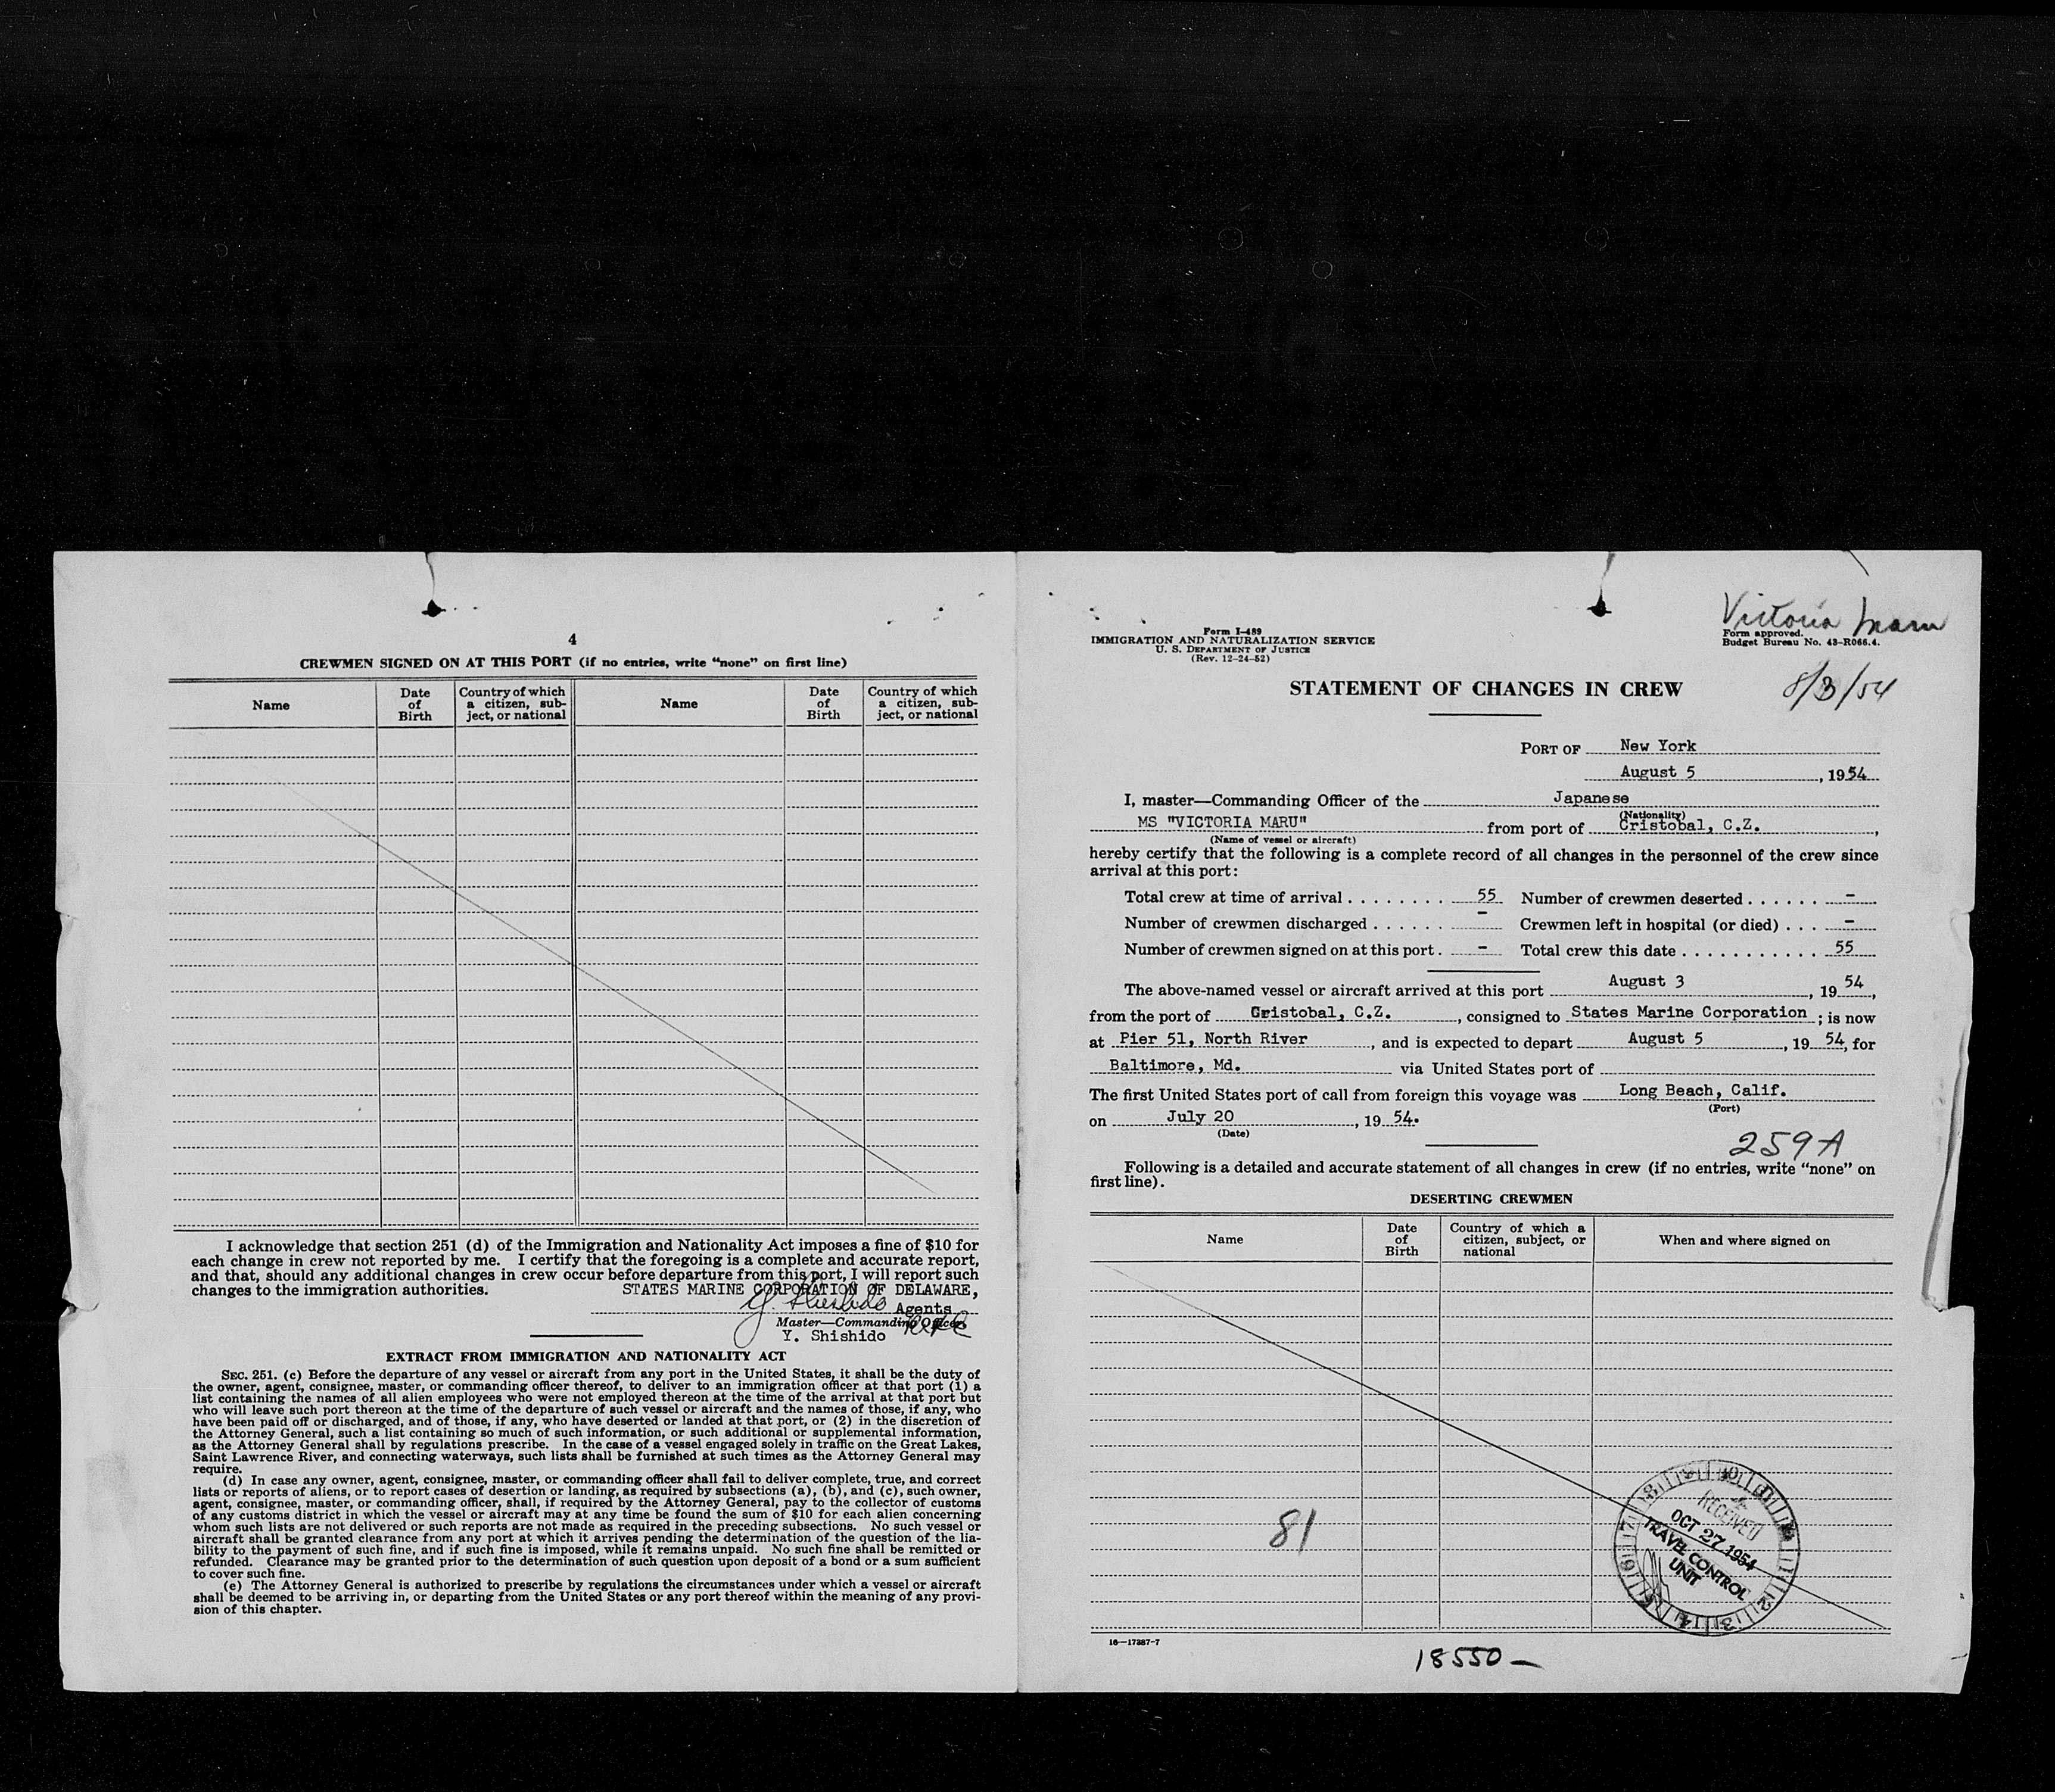 4
CREWMEN SIGNED ON AT THIS PORT (if no entries, write “none” on first line)
Name
Date of Birth
Country of which a citizen, subject, or national
Name
Date of Birth
Country of which a citizen, subject, or national
I acknowledge that section 251 (d) of the Immigration and Nationality Act imposes a fine of $10 for
each change in crew not reported by me. I certify that the foregoing is a complete and accurate report,
and that, should any additional changes in crew occur before departure from this port, I will report such
changes to the immigration authorities.
STATES MARINE CORPORATION OF DELAWARE,
Y. Shishido
Agents
Master—Commanding Officer
Y. Shishido
EXTRACT FROM IMMIGRATION AND NATIONALITY ACT
SEC. 251. (c) Before the departure of any vessel or aircraft from any port in the United States, it shall be the duty of
the owner, agent, consignee, master, or commanding officer thereof, to deliver to an immigration officer at that port (1) a
list containing the names of all alien employees who were not employed thereon at the time of the arrival at that port but
who will leave such port thereon at the time of the departure of such vessel or aircraft and the names of those, if any, who
have been paid off or discharged, and of those, if any, who have deserted or landed at that port, or (2) in the discretion of
the Attorney General, such a list containing so much of such information, or such additional or supplemental information,
as the Attorney General shall by regulations prescribe. In the case of a vessel engaged solely in traffic on the Great Lakes,
Saint Lawrence River, and connecting waterways, such lists shall be furnished at such times as the Attorney General may
require.
(d) In case any owner, agent, consignee, master, or commanding officer shall fail to deliver complete, true, and correct
lists or reports of aliens, or to report cases of desertion or landing, as required by subsections (a), (b), and (c), such owner,
agent, consignee, master, or commanding officer, shall, if required by the Attorney General, pay to the collector of customs
of any customs district in which the vessel or aircraft may at any time be found the sum of $10 for each alien concerning
whom such lists are not delivered or such reports are not made as required in the preceding subsections. No such vessel or
aircraft shall be granted clearance from any port at which it arrives pending the determination of the question of the lia-
bility to the payment of such fine, and if such fine is imposed, while it remains unpaid. No such fine shall be remitted or
refunded. Clearance may be granted prior to the determination of such question upon deposit of a bond or a sum sufficient
to cover such fine.
(e) The Attorney General is authorized to prescribe by regulations the circumstances under which a vessel or aircraft
shall be deemed to be arriving in, or departing from the United States or any port thereof within the meaning of any provi-
sion of this chapter.
Form I-489
IMMIGRATION AND NATURALIZATION SERVICE
U. S. DEPARTMENT OF JUSTICE
(Rev. 12-24-52)
Victoria Maru
Form approved.
Budget Bureau No. 43-R066.4.
8/3/54
STATEMENT OF CHANGES IN CREW
PORT OF New York
August 5, 1954
I, master—Commanding Officer of the Japanese
(Nationality)
MS "VICTORIA MARU" from port of Cristobal, C.Z.,
(Name of vessel or aircraft)
hereby certify that the following is a complete record of all changes in the personnel of the crew since
arrival at this port:
Total crew at time of arrival . . . . . . . . 55 Number of crewmen deserted . . . . . . -
Number of crewmen discharged . . . . . . - Crewmen left in hospital (or died) . . . -
Number of crewmen signed on at this port . - Total crew this date . . . . . . . . . . . 55
The above-named vessel or aircraft arrived at this port August 3, 19 54,
from the port of Cristobal, C.Z., consigned to States Marine Corporation ; is now
at Pier 51, North River, and is expected to depart August 5, 19 54, for
Baltimore, Md. via United States port of
The first United States port of call from foreign this voyage was Long Beach, Calif.
(Port)
on July 20, 19 54.
(Date)
259A
Following is a detailed and accurate statement of all changes in crew (if no entries, write “none” on
first line).
DESERTING CREWMEN
Name
Date of Birth
Country of which a citizen, subject, or national
When and where signed on
81
RECEIVED
OCT 27 1954
TRAVEL CONTROL
UNIT
16—17387-7
18550—